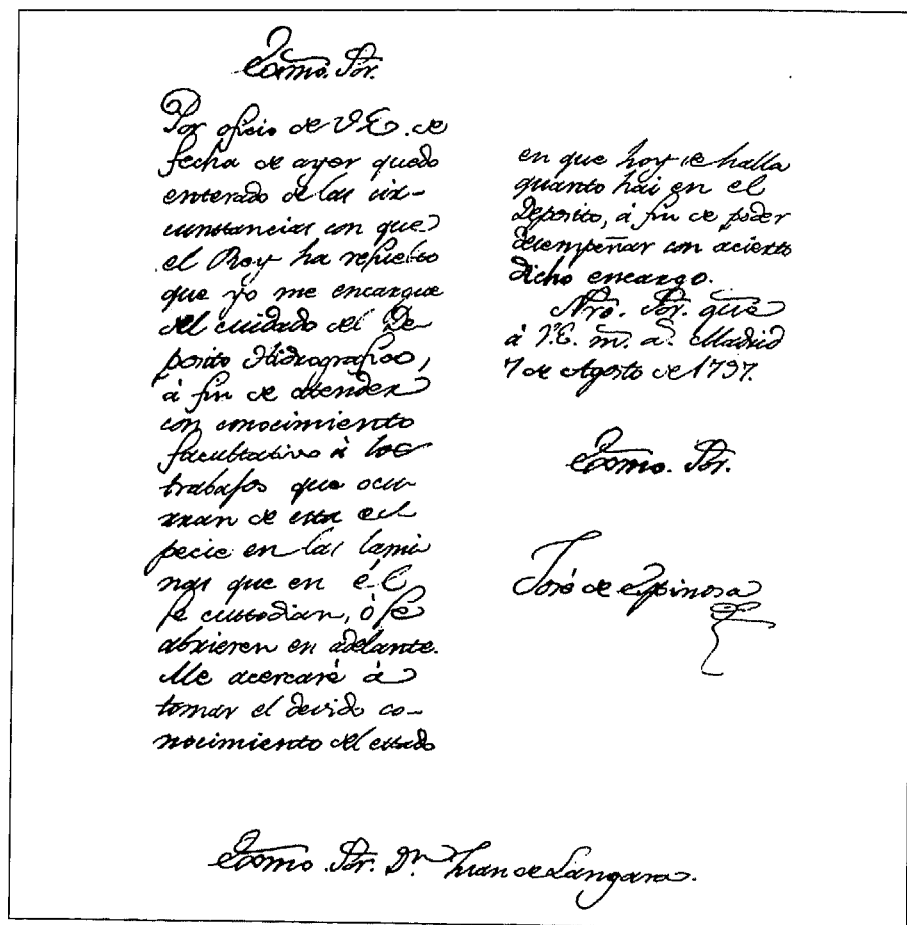 Exmo. Sor.
Por oficio de V.E. de
fecha de ayer quedo
enterado de las cir-
cunstancias con que
el Rey ha resuelto
que yo me encargue
del cuidado del De
posito Hidrografico,
á fin de atender
con conocimiento
facultativo á los
trabajos que ocu-
rran de esta es
pecie en las lami
nas que en él
se custodian, ó se
abrieren en adelante.
Me acercaré á
tomar el devido co-
nocimiento del estado
en que hoy se halla
quanto hái en el
Deposito, á fin de poder
desempeñar con acierto
dicho encargo.
Nro. Sor. gue
á V.E. m. a. Madrid
7 de Agosto de 1797.
Exmo. Sor.
José de Espinosa
Exmo. Sor. Dn. Juan de Langara.